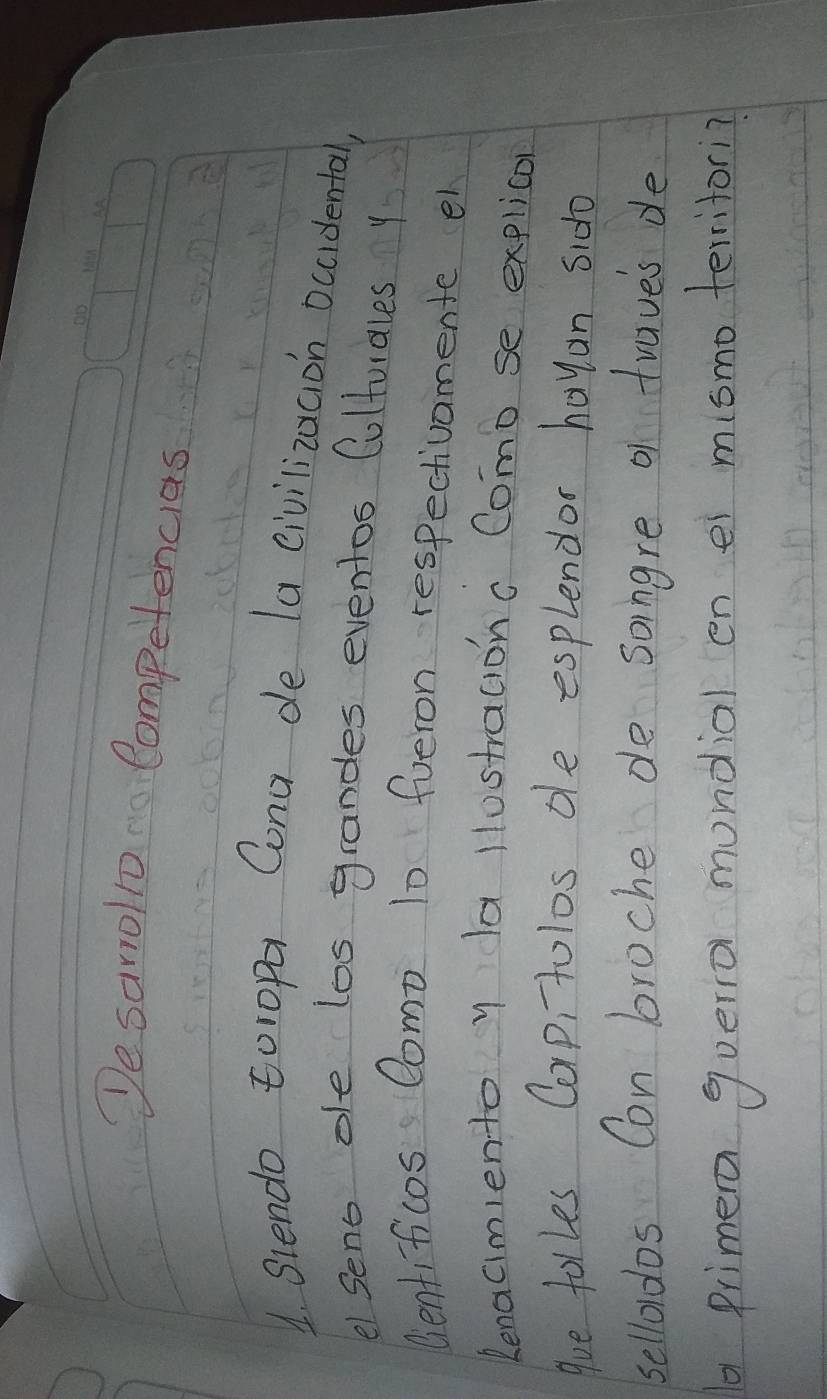 Desarrollo Competencias
1. Siendo Europa Cona de la civilización occidental,
el seno de los grandes eventos Culturales y
Cientificos Como lo fueron respectivamente el
Renacimiento y la Ilustración ¿ Cómo se explica
que tales Capitulos de esplendor hayan sido
sellados Con broche de sangre a través de
la Primera guerra mundial en el mismo territorio?